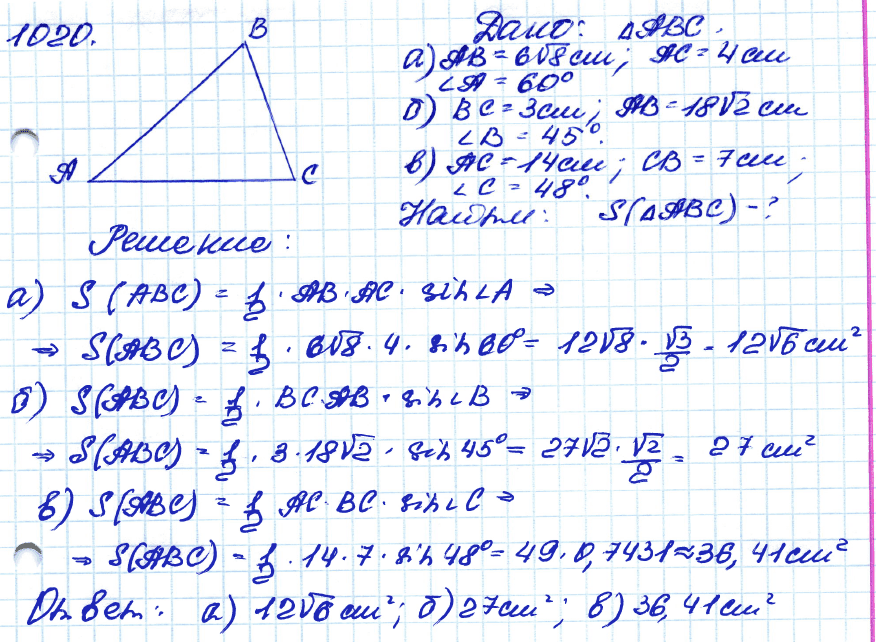 1020.
B
A
C
Дано: △ABC.
а) AB = 6√8 cm; AC = 4 cm
∠A = 60°
б) BC = 3cm; AB = 18√2 cm
∠B = 45°.
в) AC = 14cm; CB = 7cm;
∠C = 48°.
Найти: S(△ABC) - ?
Решение:
а) S (ABC) = 1/2 · AB · AC · sin∠A ⇒
⇒ S(ABC) = 1/2 · 6√8 · 4 · sin 60° = 12√8 · √3/2 = 12√6 cm²
б) S(ABC) = 1/2 · BC · AB · sin∠B ⇒
⇒ S(ABC) = 1/2 · 3 · 18√2 · sin 45° = 27√2 · √2/2 = 27 cm²
в) S(ABC) = 1/2 AC · BC · sin∠C ⇒
⇒ S(ABC) = 1/2 · 14 · 7 · sin 48° = 49 · 0,7431 ≈ 36,41 cm²
Ответ: а) 12√6 cm²; б) 27cm²; в) 36,41 cm²